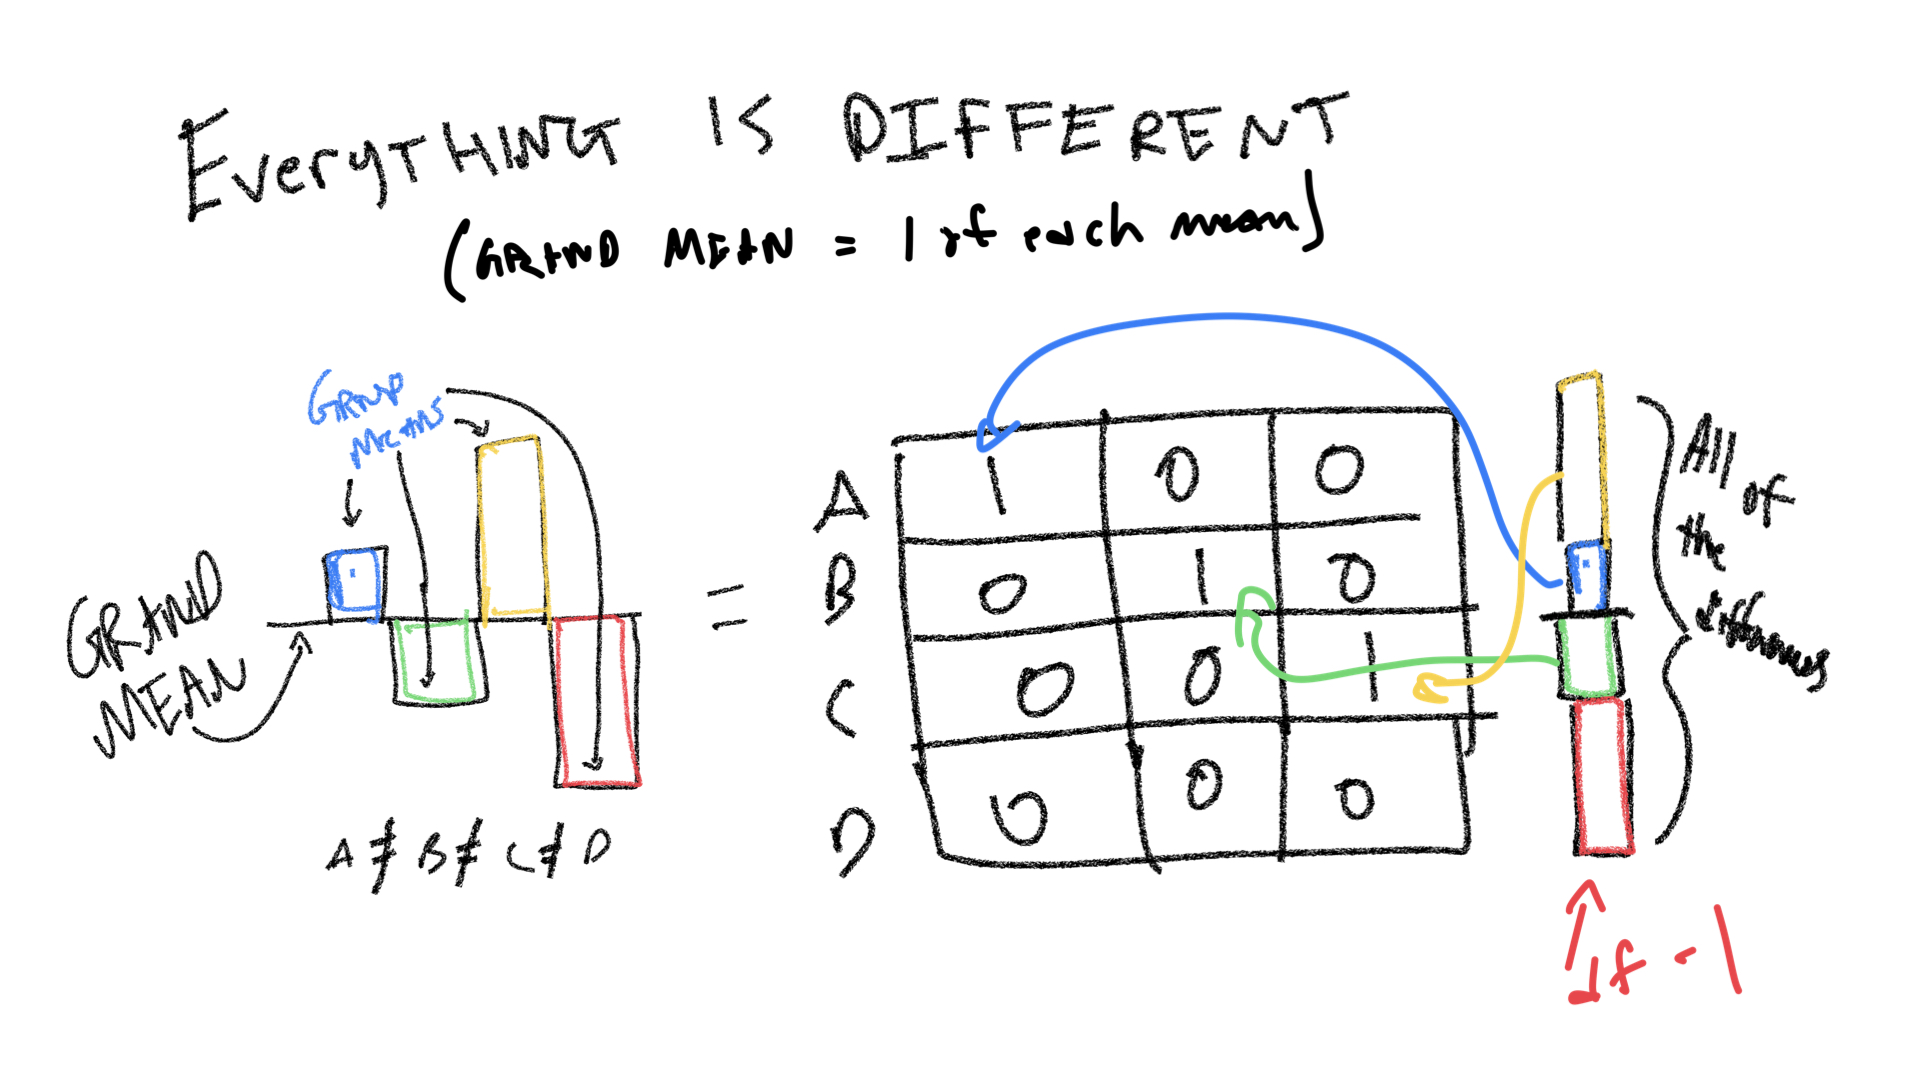 EVERYTHING IS DIFFERENT
(GRAND MEAN = 1 if each mean)
GRAND
MEANS
GRAND
MEAN
A ≠ B ≠ C ≠ D
=
A 1 0 0
B 0 1 0
C 0 0 1
D 0 0 0
All
of
the
differences
df - 1